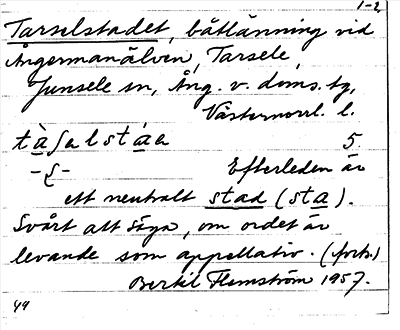 1-2
Tarselstadet, båtlänning vid
Ångermanälven, Tarsele,
Junsele sn, Ång. v. doms. tg,
Västernorrl. l.
5
Efterleden är
ett neutralt stad (sta).
Svårt att säga, om ordet är
levande som appellativ. (forts.)
Bertil Flemström 1957.
49